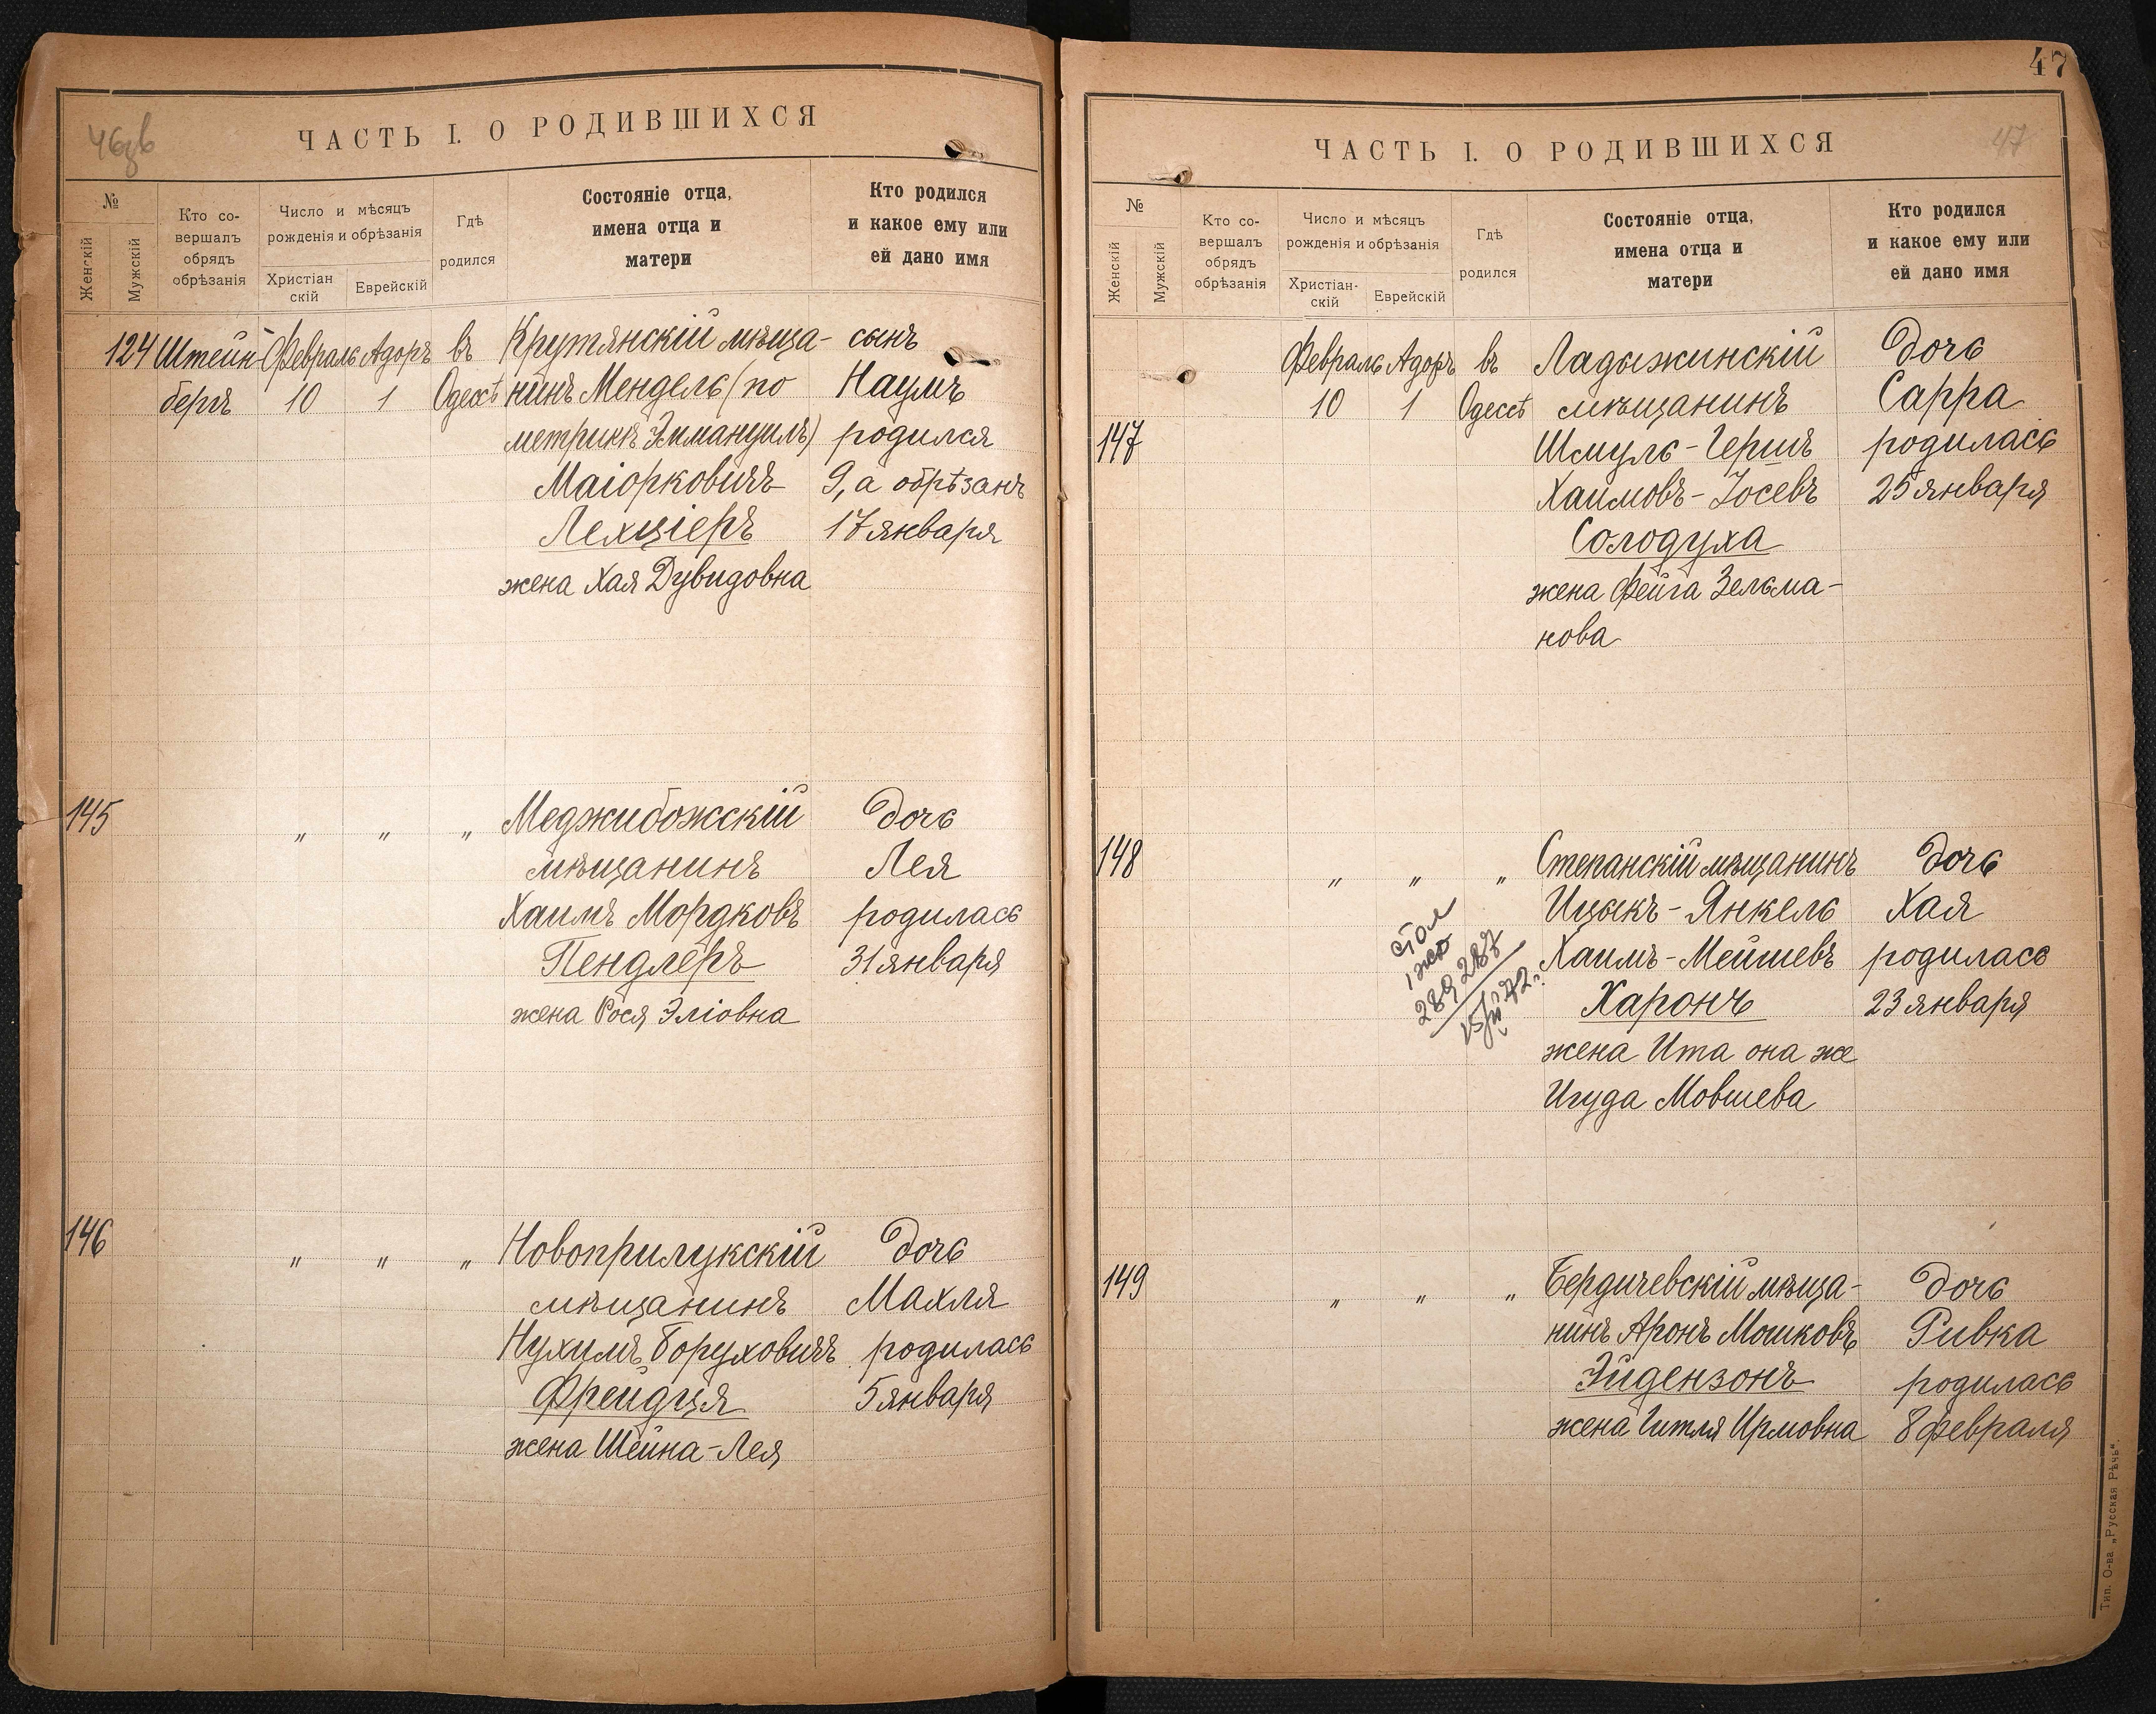 46зв
ЧАСТЬ I. О РОДИВШИХСЯ
№
Женскій
Мужскій
Кто со-
вершалъ
обрядъ
обрѣзанія
Число и мѣсяцъ
рожденія и обрѣзанія
Христіан
скій
Еврейскій
Гдѣ
родился
Состояніе отца,
имена отца и
матери
Кто родился
и какое ему или
ей дано имя
124 Штейн- Февраль Адоръ въ Крутянскій мѣща- сынъ
бергъ 10 1 Одессѣ нинъ Мендель (по Наумъ
метрикѣ Эммануилъ) родился
Маіорковичъ 9, а обрѣзанъ
Лехціеръ 17 января
жена Хая Дувидовна
145 " " " Меджибожскій дочь
мѣщанинъ Лея
Хаимъ Мордковъ родилась
Пендлеръ 31 января
жена Рося Эліовна
146 " " " Новоприлукскій дочь
мѣщанинъ Махля
Нухимъ Боруховичъ родилась
Фрейдця 5 января
жена Шейна-Лея
47
47
ЧАСТЬ I. О РОДИВШИХСЯ
№
Женскій
Мужскій
Кто со-
вершалъ
обрядъ
обрѣзанія
Число и мѣсяцъ
рожденія и обрѣзанія
Христіан-
скій
Еврейскій
Гдѣ
родился
Состояніе отца,
имена отца и
матери
Кто родился
и какое ему или
ей дано имя
Февраль Адоръ въ Ладыжинскій дочь
10 1 Одессѣ мѣщанинъ Сарра
147 Шмуль-Гершъ родилась
Хаимовъ-Іосевъ 25 января
Солодуха
жена Фейга Зельма-
нова
148 " " " Степанскій мѣщанинъ дочь
Ицыкъ-Янкель Хая
Хаимъ-Мейшевъ родилась
Харонъ 23 января
жена Ита она же
Игуда Мовшева
289 287
149 " " " Бердичевскій мѣща- дочь
нинъ Аронъ Мошковъ Ривка
Эйдензонъ родилась
жена Гитля Ирмовна 8 февраля
Тип. О-ва „Русская Рѣчь“.